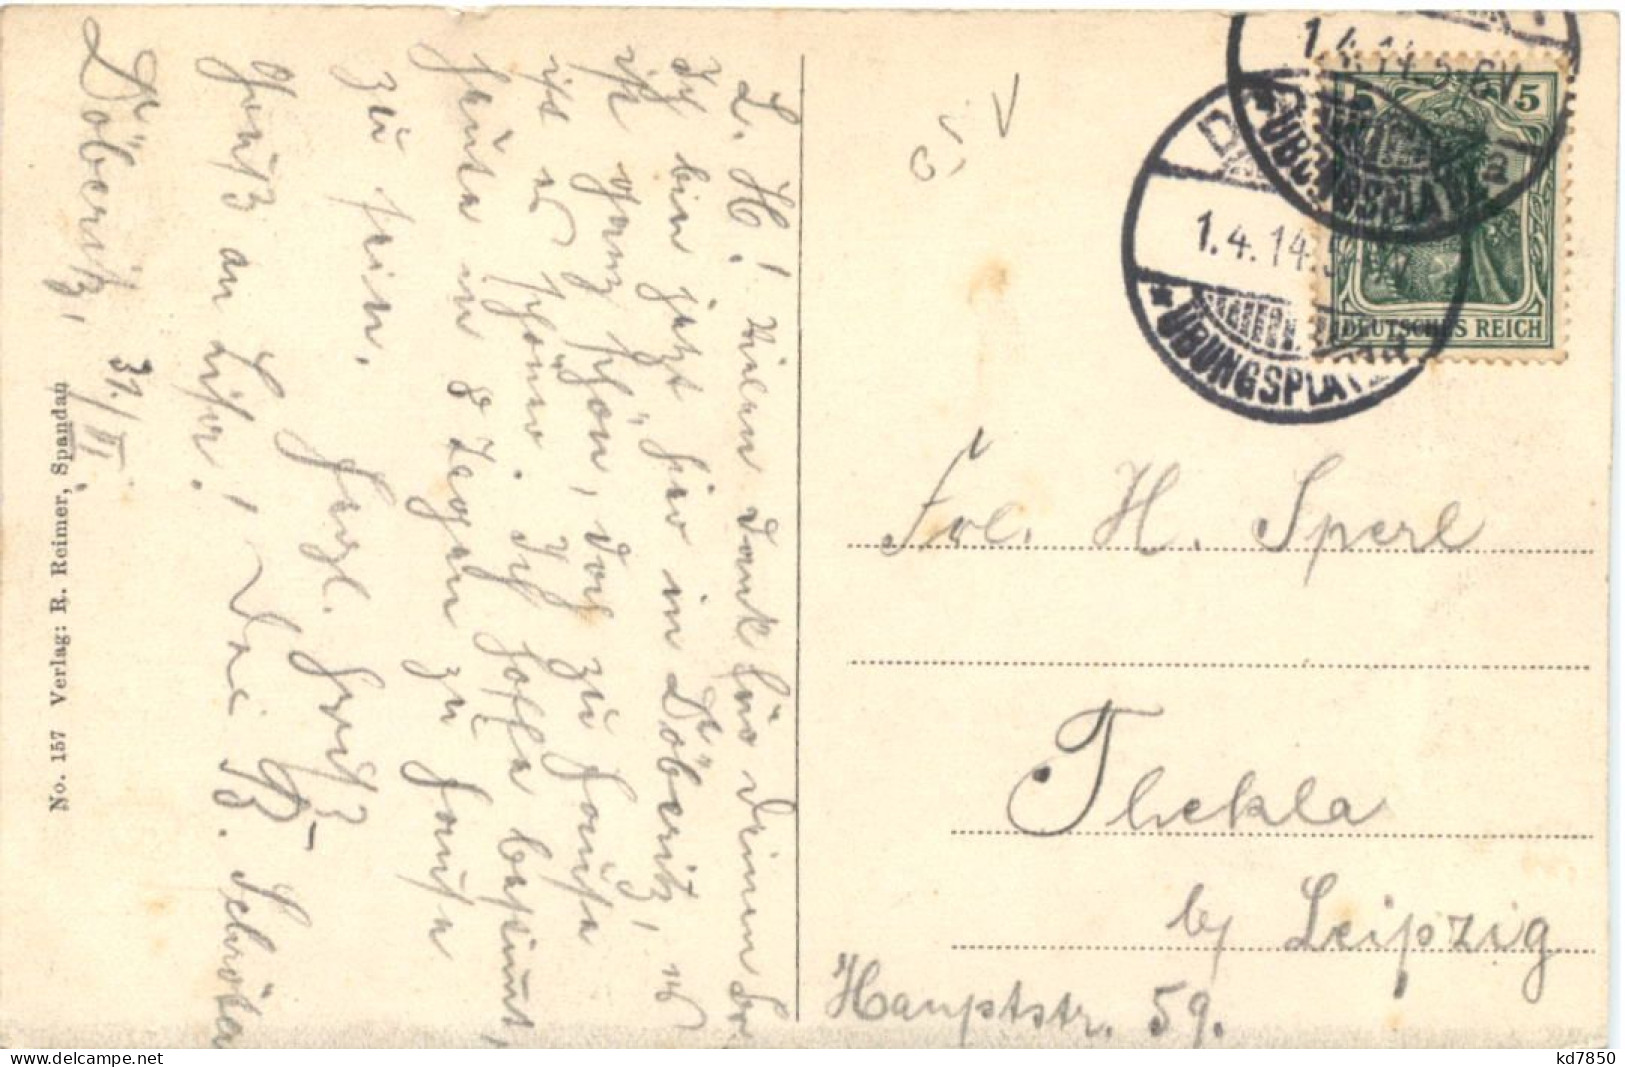 Döberitz, 31./III.
L. H.! Vielen Dank für Deinen Br.
Ich bin jetzt hier in Döberitz, es
ist ganz schön, doch zu Hause
ist es schöner. Ich hoffe bestimmt,
heute in 8 Tagen zu Hause
zu sein.
Herzl. Gruß
Gruß an Eltern! Dein B. Schröter
No. 157 Verlag: R. Reimer, Spandau
1.4.14. 5-6 V
ÜBUNGSPLATZ
5 5
DEUTSCHES REICH
1.4.14.
ÜBUNGSPLATZ
Frl. H. Sperl
Thekla
by Leipzig
Hauptstr. 59.
kd7850